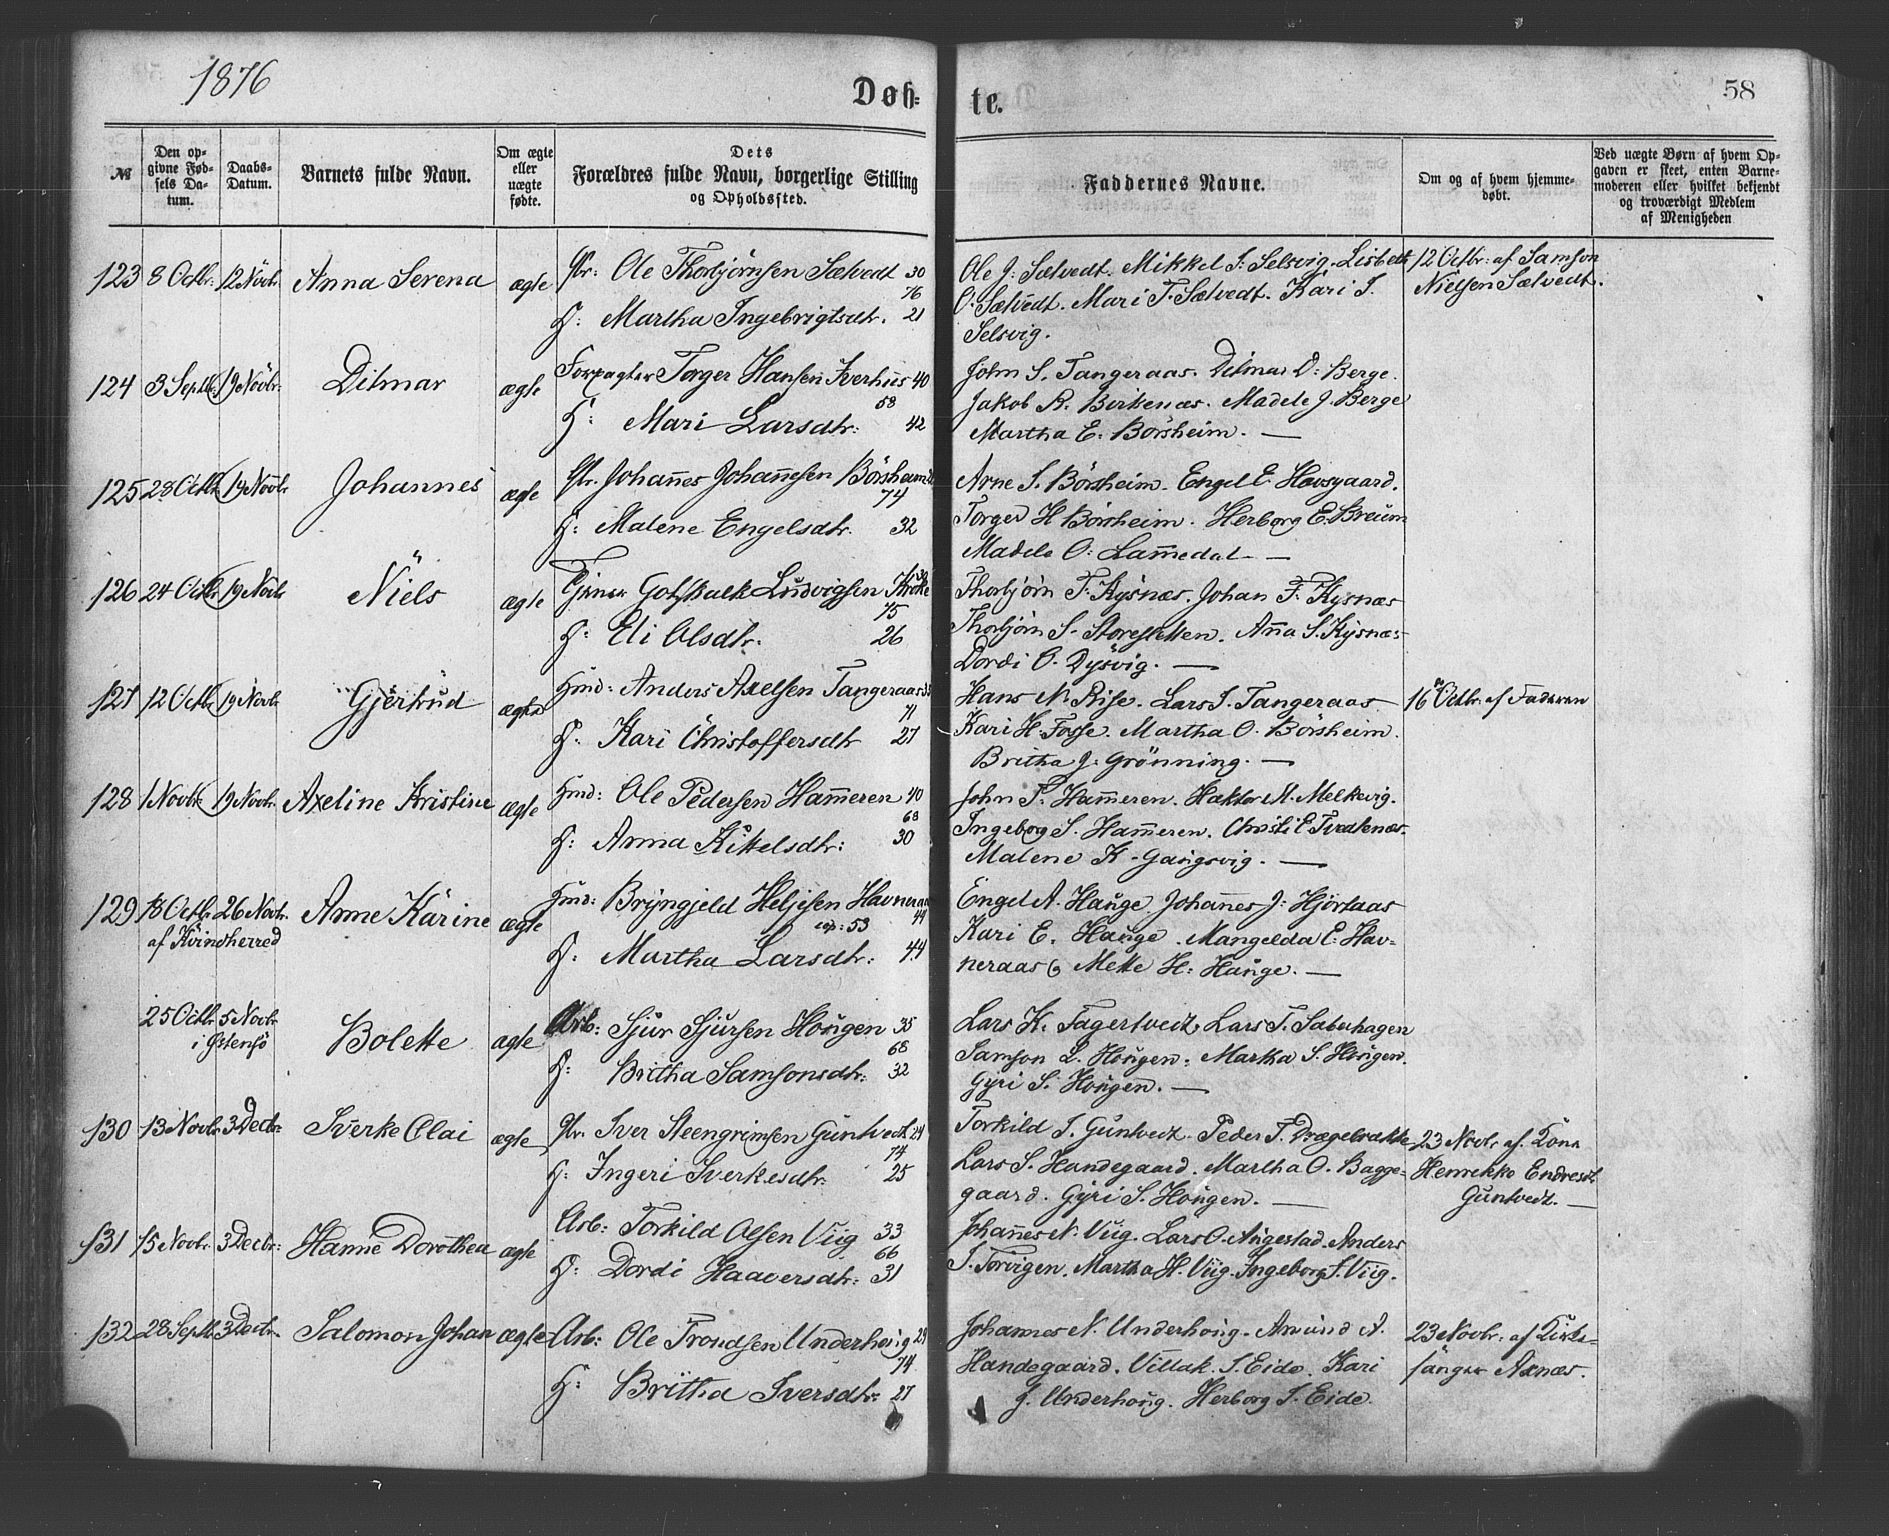 1876
Døb=
te.
58
№
Den op=
givne Fød=
sels Da=
tum.
Daabs=
Datum.
Barnets fulde Navn.
Om ægte
eller
uægte
fødte.
Dets
Forældres fulde Navn, borgerlige Stilling
og Opholdssted.
Faddernes Navne.
Om og af hvem hjemme=
døbt.
Ved uægte Børn af hvem Op=
gaven er skeet, enten Barne=
moderen eller hvilket bekjendt
og troværdigt Medlem
af Menigheden
123 8 Octbr: 12 Novbr Anna Serena ægte Gbr: Ole Thorbjørnsen Sælvedt 30
76
H: Martha Ingebrigtsdtr. 21
Ole J: Sælvedt. Mikkel S: Selsvig. Lisbeth
O. Sælvedt. Mari T. Sælvedt. Kari I.
Selsvig.
12 Octbr: af Samson
Nielsen Sælvedt.
124 3 Septbr 19 Novbr. Ditmar ægte Forpagter Torger Hansen Iverhus 40
58
H: Mari Larsdtr: 42
John S. Tangeraas. Ditmar D: Berge.
Jakob R. Birkenæs. Madele J. Berge
Martha E. Børsheim. —
125 28 Octbr 19 Novbr Johannes ægte Gbr. Johannes Johannesen Børsheim
74
H: Malene Engelsdtr. 32
Arne S. Børsheim. Engel E. Hovsgaard.
Torger H Børsheim. Herborg E. Breum
Madele O: Lammedal. —
126 24 Octbr 19 Novbr Niels ægte Tjener Gotskalk Ludvigsen Kroke
75
H: Eli Olsdtr. 26
Thorbjørn T. Kysnæs. Johan F. Kysnæs
Thorbjørn S. Storesletten. Anna S. Kysnæs
Dordi O. Dysvig. —
127 12 Octbr 19 Novbr Gjertrud ægte Hmd: Anders Axelsen Tangeraas
71
H. Kari Christoffersdtr 27
Hans N. Rise. Lars J. Tangeraas
Kari H. Fosse. Martha O. Børsheim.
Britha J. Grønning. —
16 Octbr: af Faderen
128 1 Novbr 19 Novbr. Axeline Kristine ægte Hmd: Ole Pedersen Hammeren 40
68
H: Anna Kittelsdtr: 30
John P. Hammeren. Haktor M. Melkevig.
Ingeborg S. Hammeren. Christi E. Tvedtenæs.
Malene K. Gangsvig. —
129 18 Octbr 26 Novbr. Anne Karine ægte Hmd: Bryngjeld Heljesen Havneraas
44
af Kvindherred
cop: 53
H. Martha Larsdtr: 44
Engel A. Hauge. Johannes J: Hjortaas
Kari E. Hauge. Mangelda E: Hav=
neraas, Mette H: Hauge. —
25 Octbr 5 Novbr Bolette ægte Arb: Sjur Sjursen Hougen 35
i Østensø
68
H: Britha Samsonsdtr: 32
Lars K. Fagertvedt, Lars T. Saberhagen
Samson L. Hougen. Marka S. Hougen.
Gyri S. Hougen. —
130 13 Novbr 3 Decbr Sverke Olai ægte Gbr. Iver Steengrimsen Guntvedt 24
74
H: Ingeri Sverkesdtr. 25
Torkild I. Guntvedt. Peder T. Drægebrække
Lars S. Handegaard. Martha O. Bagge=
gaard. Gyri S. Hougen. —
23 Novbr. af Kona
Henrikke Endresdt
Guntvedt. —
131 15 Novbr. 3 Decbr: Hanne Dorothea ægte Arb: Torkild Olsen Viig 33
66
H: Dordi Haaversdtr: 31
Johannes N. Viig. Lars O. Augestad. Anders
S. Torvigen. Martha H. Viig. Ingeborg J. Viig.
132 28 Septbr 3 Decbr. Salomon Johan ægte Arb: Ole Trondsen Underhoug 29
74
H: Britha Iversdtr: 27
Johannes N. Underhoug. Amund A.
Handegaard. Villak. I. Eide. Kari
J. Underhoug. Herborg I. Eide.
23 Novbr: af Kirke=
sanger Axnæs.